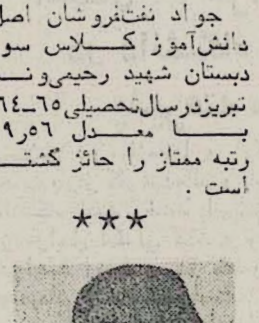 جواد نفت‌فروشان اصل
دانش‌آموز کلاس سو
دبستان شهید رحیمی‌ونـ
تبریزدرسال‌تحصیلی ٦٥ـ٦٤
بـا معـدل ٥٦ر٩
رتبه ممتاز را حائز گشتـ
است .
***